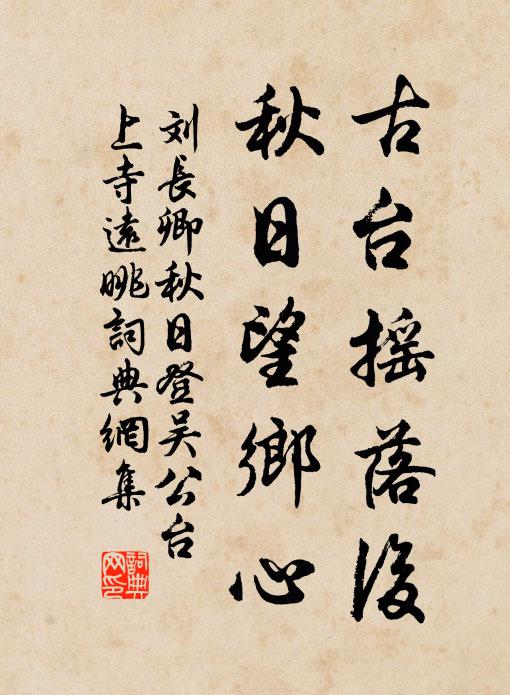 古台摇落後
秋日望鄉心
刘長卿秋日登吴公台
上寺遠眺詞典網集
詞典
网印